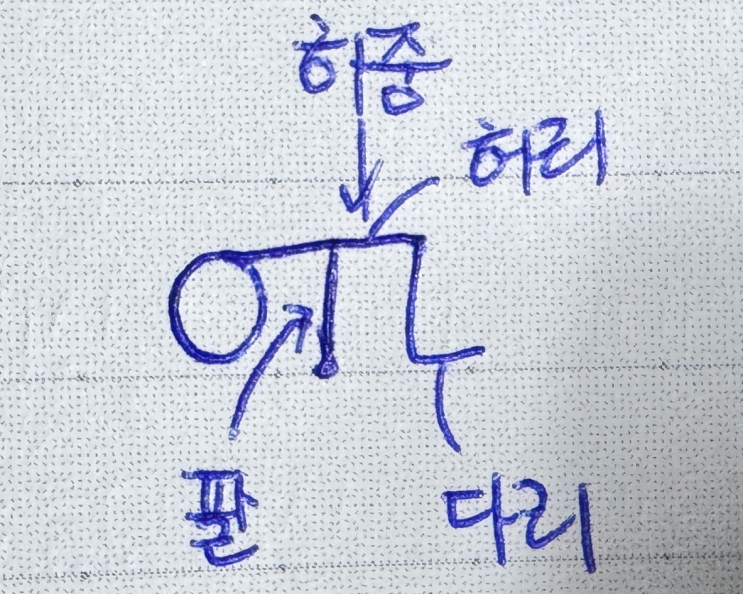 하중
허리
팔
다리